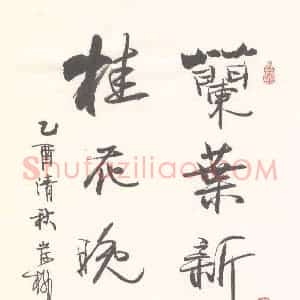 蘭葉新
桂花晚
乙酉清秋
Shufaziliao.com